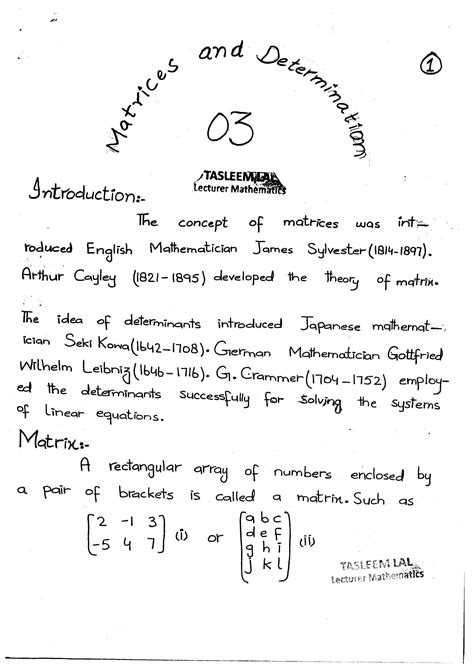 Matrices and Determination
1
03
TASLEEM LAL
Lecturer Mathematics
Introduction:-
The concept of matrices was int-
roduced English Mathematician James Sylvester (1814-1897).
Arthur Cayley (1821-1895) developed the theory of matrix.
The idea of determinants introduced Japanese mathemat-
ician Seki Kowa (1642-1708). German Mathematician Gottfried
Wilhelm Leibniz (1646-1716). G. Crammer (1704-1752) employ-
ed the determinants successfully for solving the systems
of linear equations.
Matrix:-
A rectangular array of numbers enclosed by
a pair of brackets is called a matrix. Such as
[2 -1 3
-5 4 7] (i) or [a b c
d e f
g h i
j k l] (ii)
TASLEEM LAL
Lecturer Mathematics